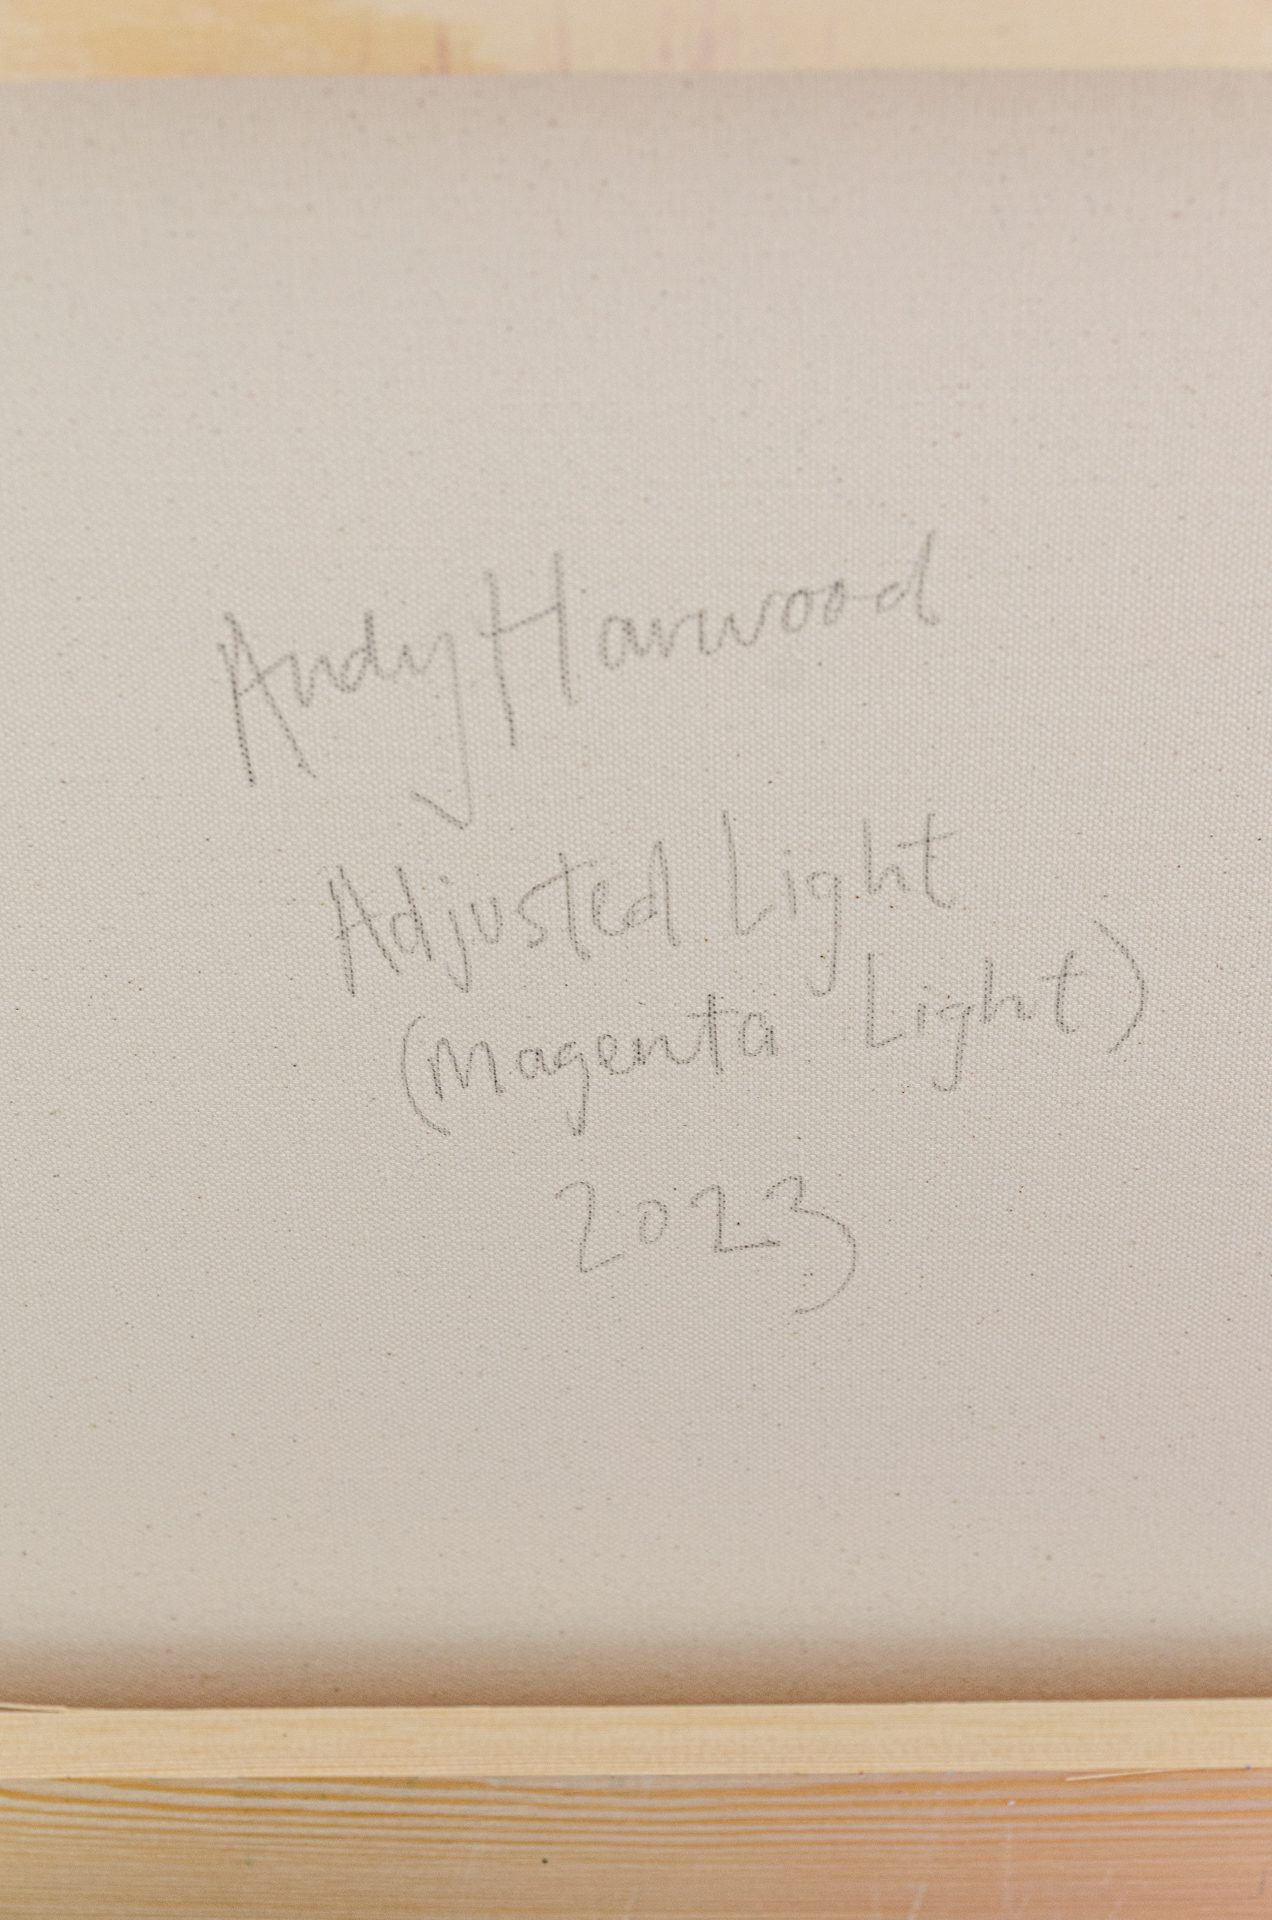 Andy Harwood
Adjusted Light
(Magenta Light)
2023